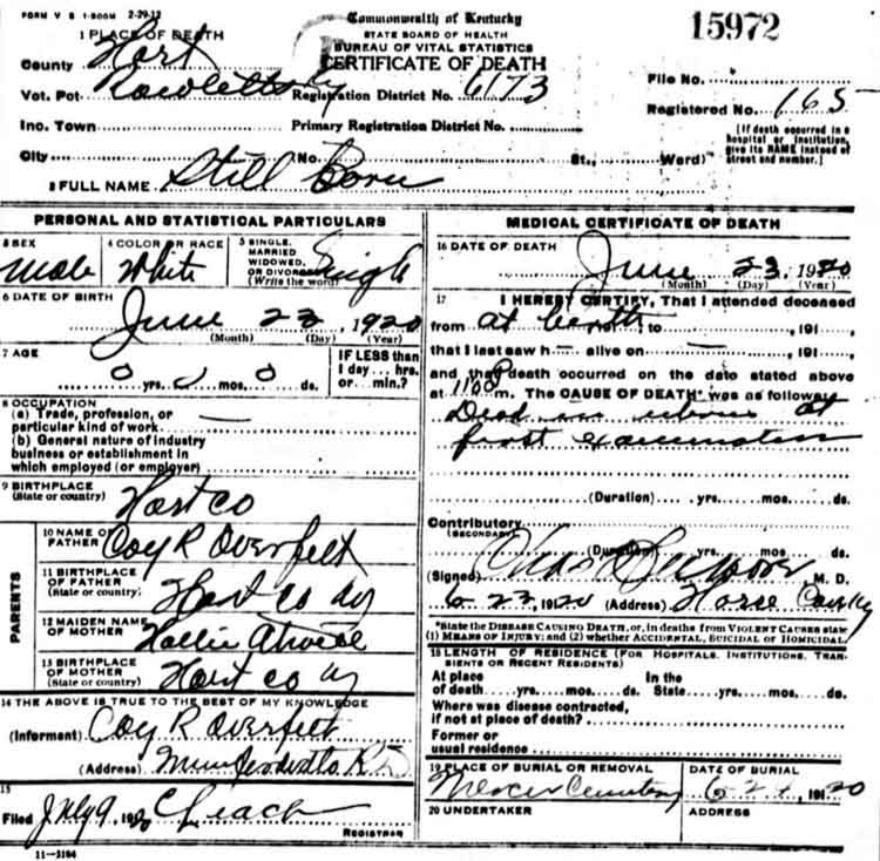 FORM V S 1-500M 2-29-12
Commonwealth of Kentucky
STATE BOARD OF HEALTH
BUREAU OF VITAL STATISTICS
CERTIFICATE OF DEATH
15972
1 PLACE OF DEATH
County Hart
Vot. Pct. Registration District No. 6173
File No.
Registered No. 165
Inc. Town Primary Registration District No.
City (No. St., Ward)
[If death occurred in a hospital or institution, give its NAME instead of street and number.]
2 FULL NAME Still Born
PERSONAL AND STATISTICAL PARTICULARS
3 SEX
Male
4 COLOR OR RACE
White
5 SINGLE, MARRIED WIDOWED, OR DIVORCED (Write the word)
Single
6 DATE OF BIRTH
June 23, 1920
(Month) (Day) (Year)
7 AGE
0 yrs. 0 mos. 0 ds.
IF LESS than 1 day... hrs. or... min.?
8 OCCUPATION
(a) Trade, profession, or
particular kind of work
(b) General nature of industry
business or establishment in
which employed (or employer)
9 BIRTHPLACE
(State or country)
Hart co
PARENTS
10 NAME OF FATHER
Coy R Overfelt
11 BIRTHPLACE OF FATHER
(State or country)
Hart co Ky
12 MAIDEN NAME OF MOTHER
13 BIRTHPLACE OF MOTHER
(State or country)
Hart co Ky
14 THE ABOVE IS TRUE TO THE BEST OF MY KNOWLEDGE
(Informant) Coy R Overfelt
(Address)
15
Filed July 9, 1920 C Leach
REGISTRAR
11-3184
MEDICAL CERTIFICATE OF DEATH
16 DATE OF DEATH
June 23, 1920
(Month) (Day) (Year)
17 I HEREBY CERTIFY, That I attended deceased
from at birth to , 191
that I last saw h— alive on — , 191
and that death occurred on the date stated above
at m. The CAUSE OF DEATH* was as follows:
Dead at
first examination
(Duration) yrs. mos. ds.
Contributory
(SECONDARY)
(Duration) yrs. mos. ds.
(Signed) M. D.
6 23, 1920 (Address) Horse Cave Ky
*State the DISEASE CAUSING DEATH, or, in deaths from VIOLENT CAUSES state
(1) MEANS OF INJURY; and (2) whether ACCIDENTAL, SUICIDAL or HOMICIDAL.
18 LENGTH OF RESIDENCE (FOR HOSPITALS, INSTITUTIONS, TRANSIENTS OR RECENT RESIDENTS)
At place of death yrs. mos. ds. In the State yrs. mos. ds.
Where was disease contracted,
if not at place of death?
Former or
usual residence
19 PLACE OF BURIAL OR REMOVAL
Cemetery
DATE OF BURIAL
20 UNDERTAKER
ADDRESS